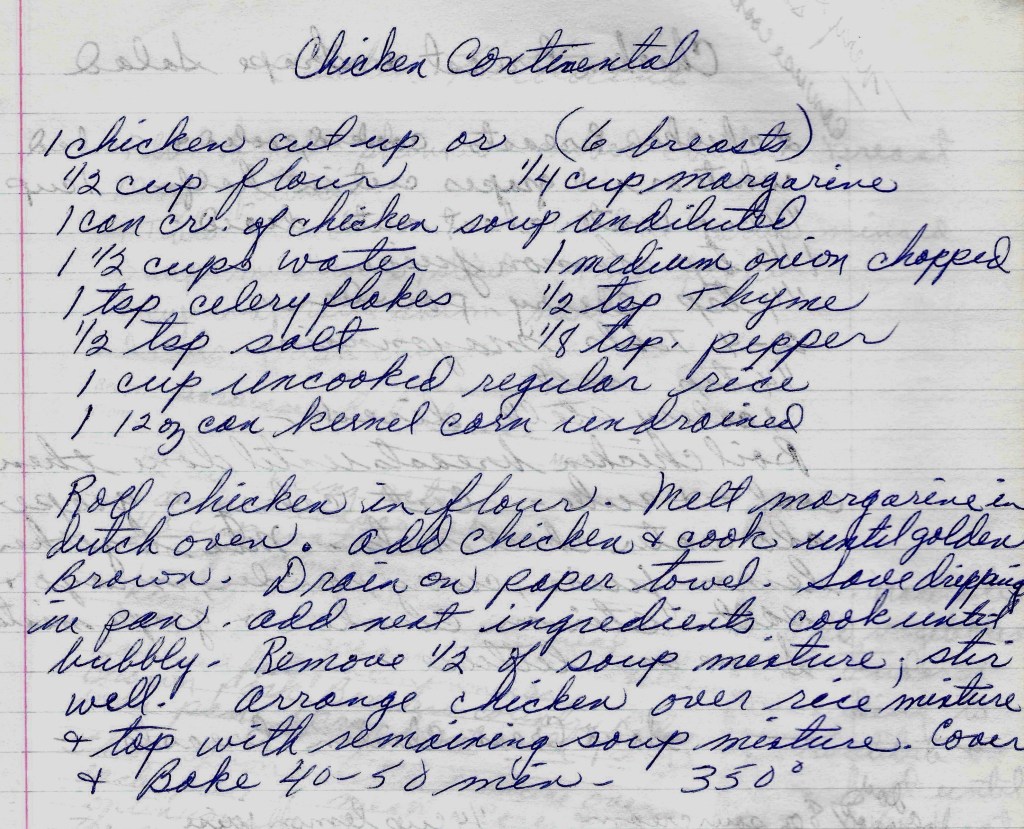 Chicken Continental
1 chicken cut up or (6 breasts)
1/2 cup flour 1/4 cup margarine
1 can cr. of chicken soup undiluted
1 1/2 cups water 1 medium onion chopped
1 tsp celery flakes 1/2 tsp Thyme
1/2 tsp salt 1/8 tsp. pepper
1 cup uncooked regular rice
1 12 oz can kernel corn undrained
Roll chicken in flour. Melt margarine in
dutch oven. add chicken & cook until golden
Brown. Drain on paper towel. Save dripping
in pan. add next ingredients cook until
bubbly. Remove 1/2 of soup mixture, stir
well. arrange chicken over rice mixture
& top with remaining soup mixture. Cover
& Bake 40-50 min - 350°